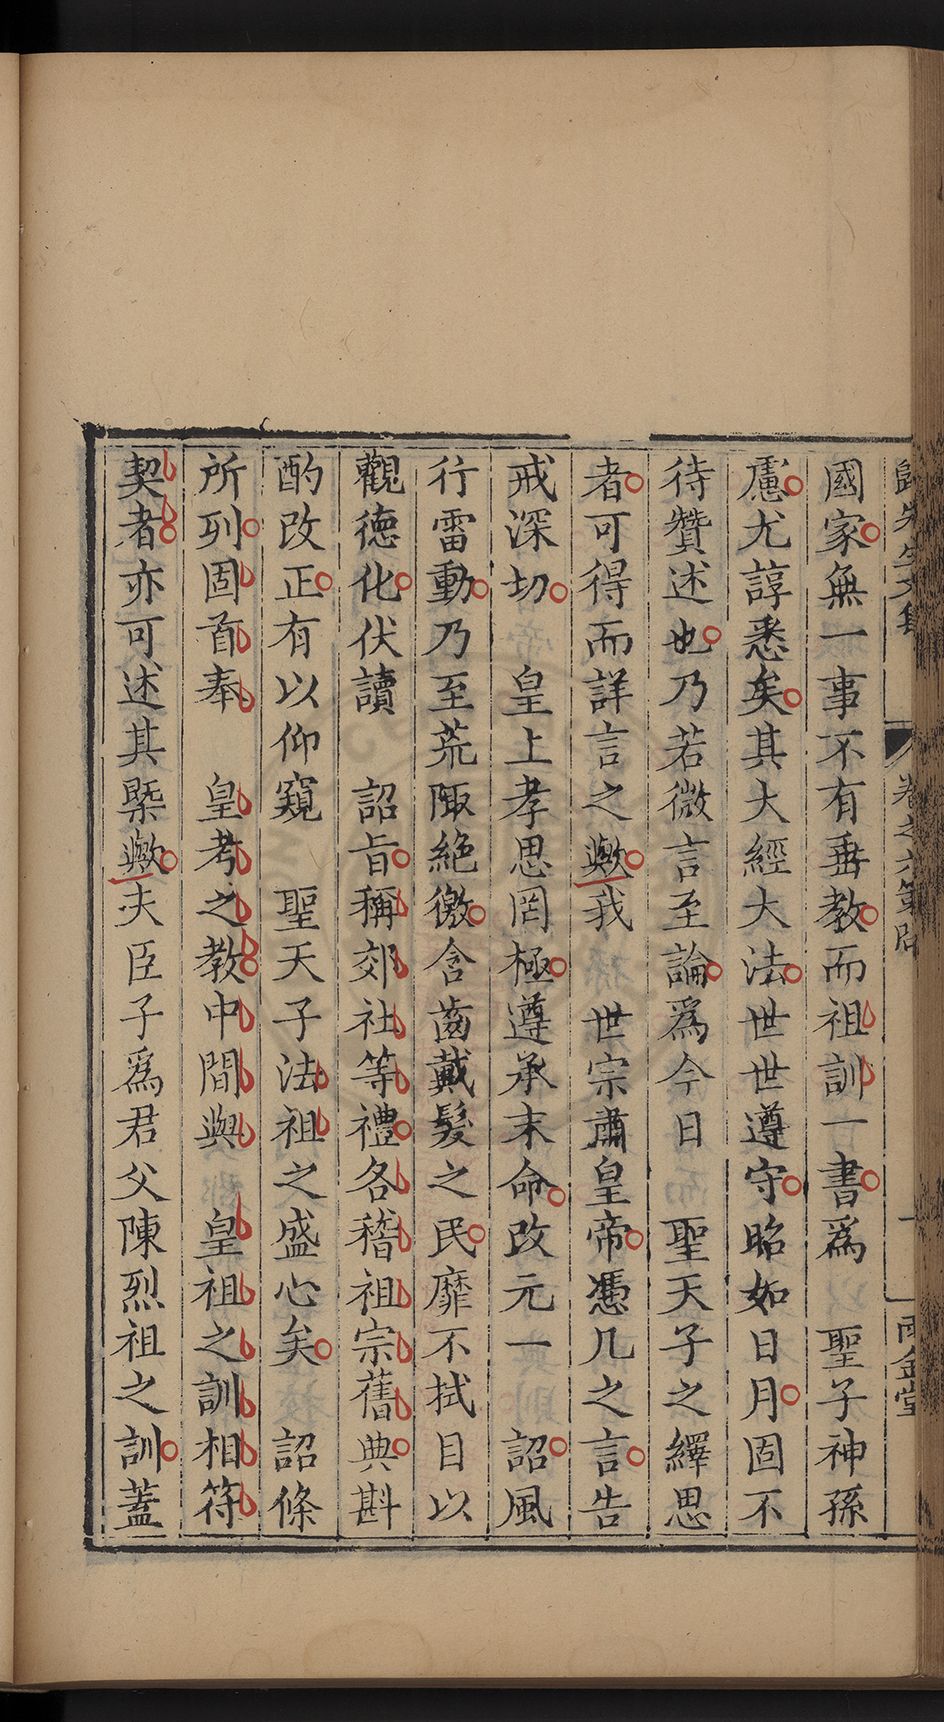 歸先生文集 卷之六第問 一 雨金堂
國家無一事不有垂教而祖訓一書爲 聖子神孫
慮尤諄悉矣其大經大法世世遵守昭如日月固不
待贊述也乃若微言至論爲今日 聖天子之繹思
者可得而詳言之歟我 世宗肅皇帝憑几之言告
戒深切 皇上孝思罔極遵承末命改元一 詔風
行雷動乃至荒陬絶徼含齒戴髮之民靡不拭目以
觀德化伏讀 詔旨稱郊社等禮各稽祖宗舊典斟
酌改正有以仰窺 聖天子法祖之盛心矣 詔條
所列固首奉 皇考之教中間與 皇祖之訓相符
契者亦可述其槩歟夫臣子爲君父陳烈祖之訓蓋